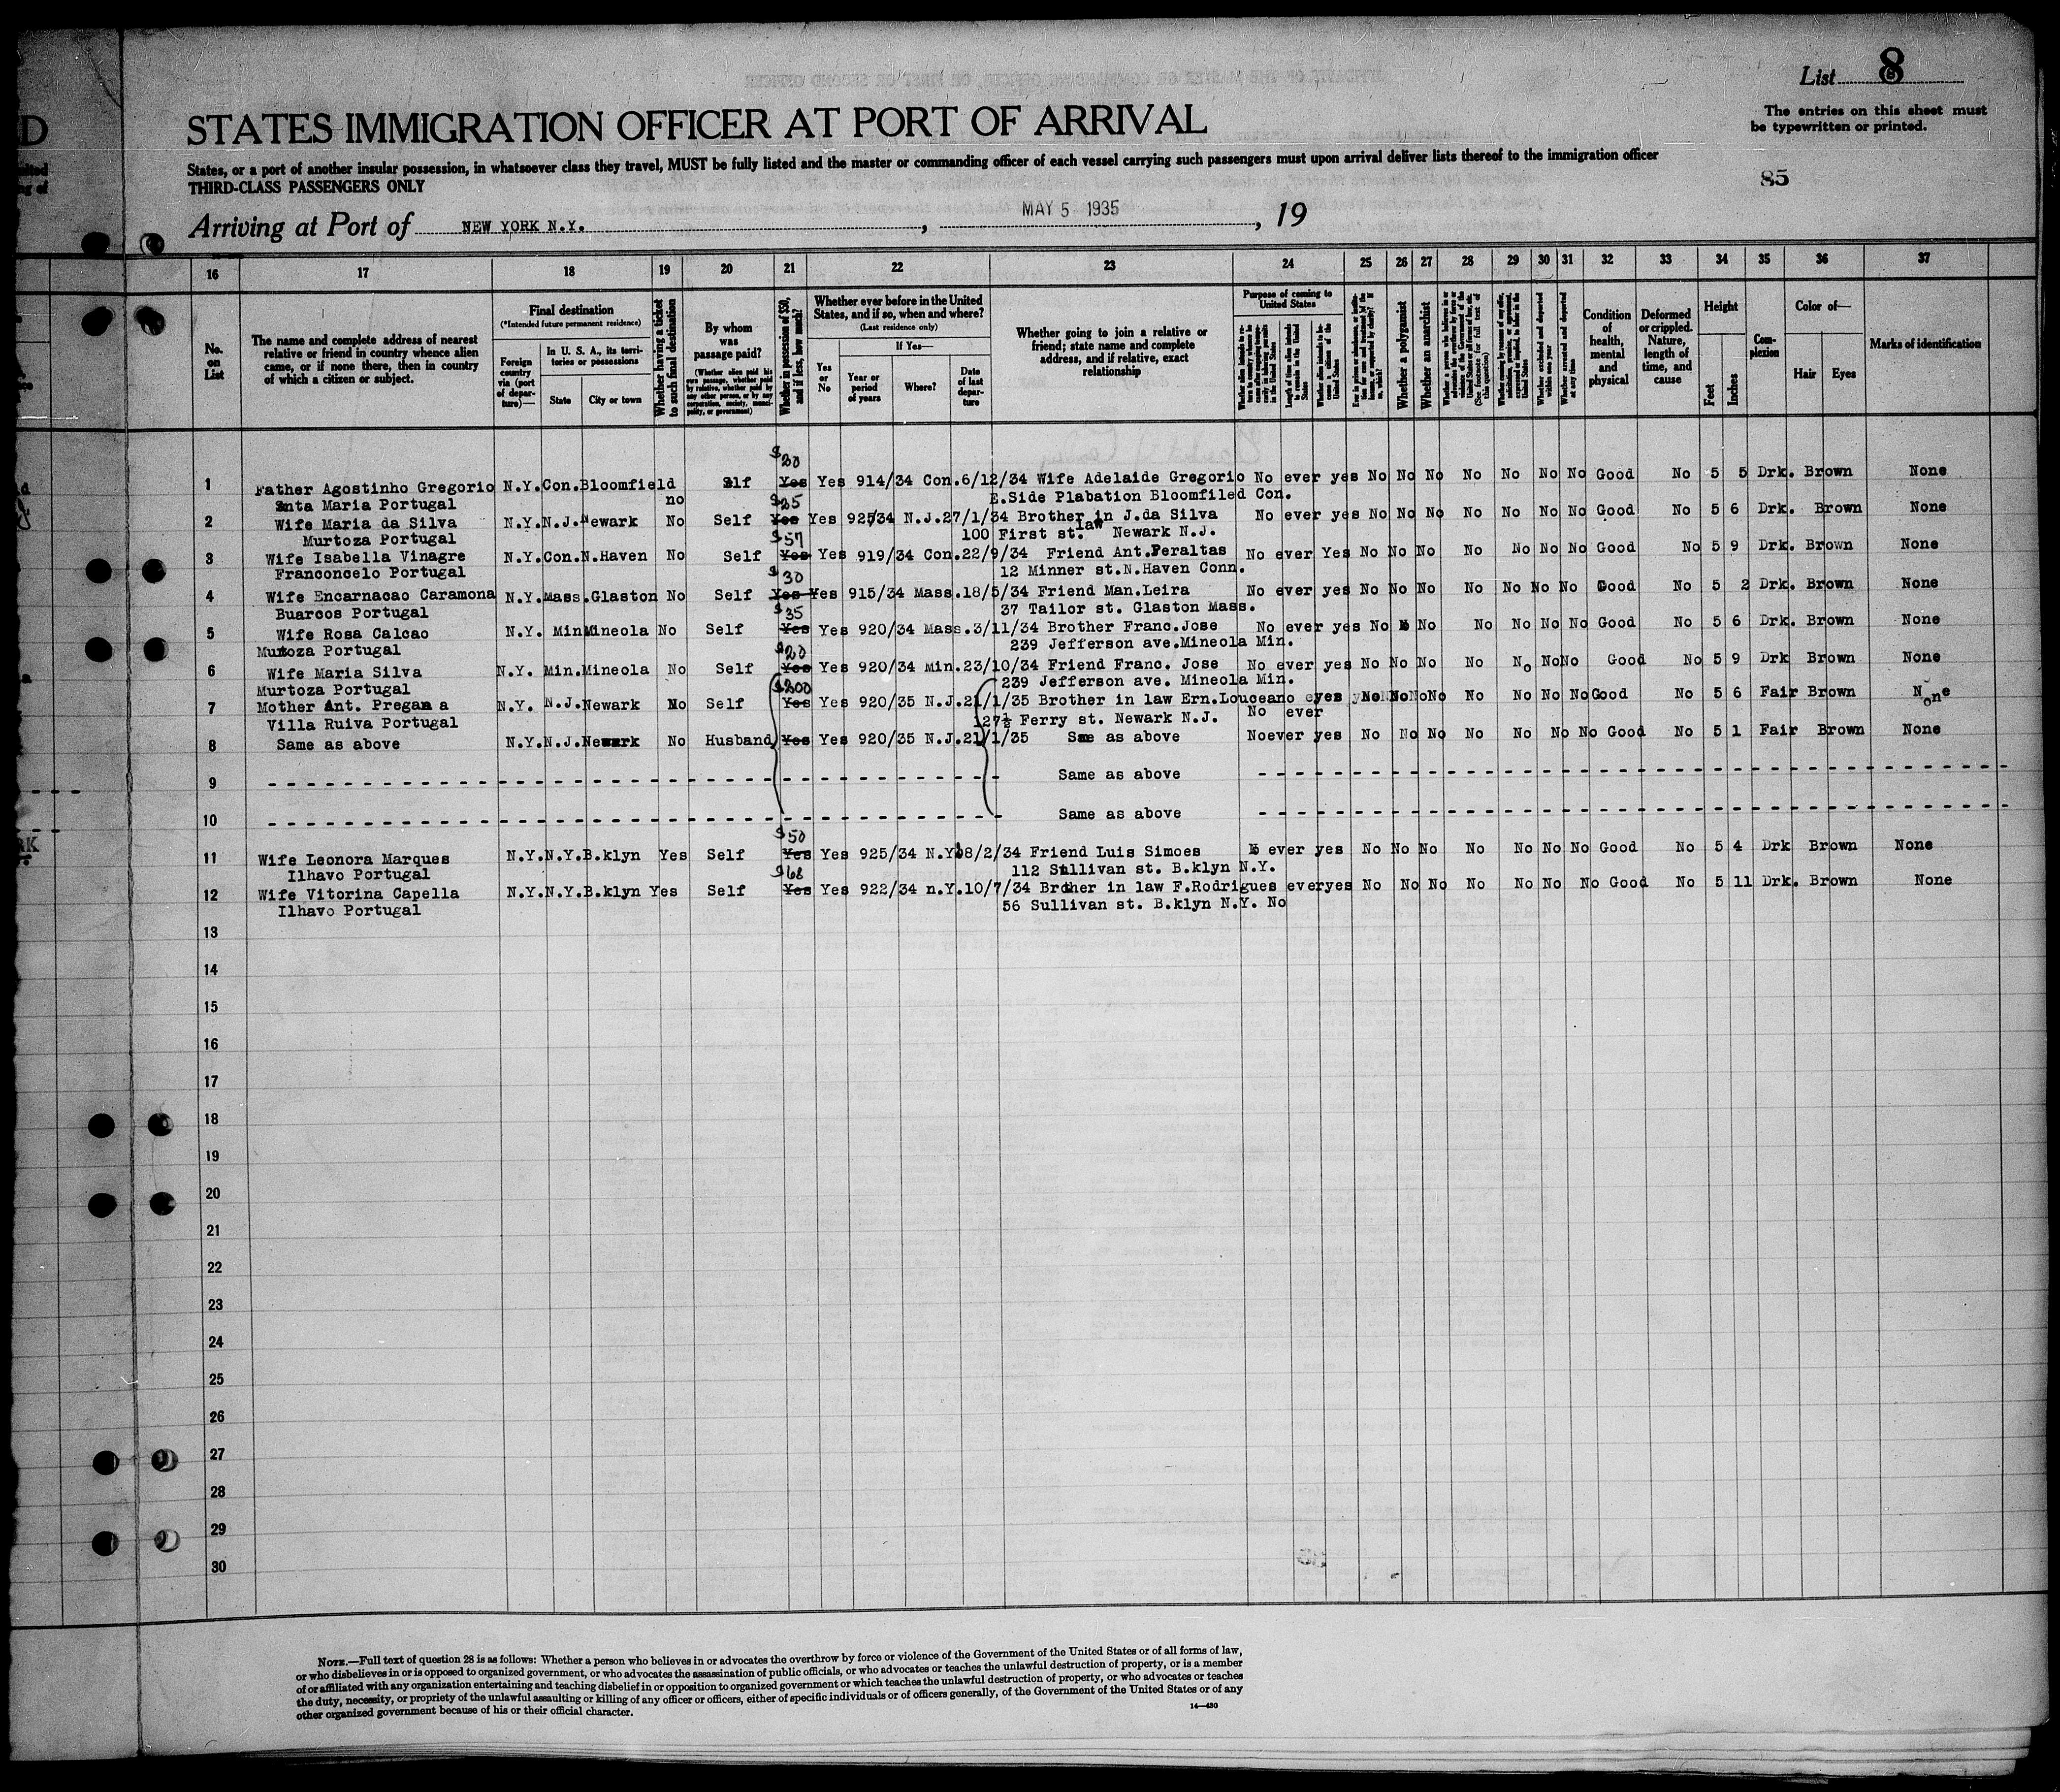 List 8
The entries on this sheet must
be typewritten or printed.
D
STATES IMMIGRATION OFFICER AT PORT OF ARRIVAL
States, or a port of another insular possession, in whatsoever class they travel, MUST be fully listed and the master or commanding officer of each vessel carrying such passengers must upon arrival deliver lists thereof to the immigration officer
THIRD-CLASS PASSENGERS ONLY
85
Arriving at Port of NEW YORK N.Y. , MAY 5 1935 , 19
16 17 18 19 20 21 22 23 24 25 26 27 28 29 30 31 32 33 34 35 36 37
No. on List
The name and complete address of nearest relative or friend in country whence alien came, or if none there, then in country of which a citizen or subject.
Final destination
(*Intended future permanent residence)
Foreign country via (port of departure)—
In U. S. A., its territories or possessions
State
City or town
Whether having a ticket to such final destination
By whom was passage paid?
(Whether alien paid his own passage, whether paid by relative, whether paid by any other person, or by any corporation, society, municipality, or government)
Whether in possession of $50, and if less, how much?
Whether ever before in the United States, and if so, when and where?
(Last residence only)
Yes or No
If Yes—
Year or period of years
Where?
Date of last departure
Whether going to join a relative or friend; state name and complete address, and if relative, exact relationship
Purpose of coming to United States
Length of time alien intends to remain in the United States
Whether alien intends to become a citizen of the United States
Whether a polygamist
Whether an anarchist
(See footnote for full text of this question)
Whether excluded and deported within one year
Whether arrested and deported at any time
Condition of health, mental and physical
Deformed or crippled. Nature, length of time, and cause
Height
Feet
Inches
Complexion
Color of—
Hair
Eyes
Marks of identification
$20
1 Father Agostinho Gregorio N.Y. Con. Bloomfield Slf Yes Yes 914/34 Con. 6/12/34 Wife Adelaide Gregorio No ever yes No No No No No No No Good No 5 5 Drk. Brown None
Snta Maria Portugal no $25 E.Side Plabation Bloomfiled Con.
2 Wife Maria da Silva N.Y. N.J. Newark No Self Yes Yes 925/34 N.J. 27/1/34 Brother in law J.da Silva No ever yes No No No No No No No Good No 5 6 Drk. Brown None
Murtoza Portugal $57 100 First st. Newark N.J.
3 Wife Isabella Vinagre N.Y. Con. N.Haven No Self Yes Yes 919/34 Con. 22/9/34 Friend Ant.Peraltas No ever Yes No No No No No No No Good No 5 9 Drk. Brown None
Franconcelo Portugal $30 12 Minner st.N.Haven Conn.
4 Wife Encarnacao Caramona N.Y. Mass. Glaston No Self Yes Yes 915/34 Mass. 18/5/34 Friend Man.Leira No ever yes No No No No No No No Good No 5 2 Drk. Brown None
Buarcos Portugal $35 37 Tailor st. Glaston Mass.
5 Wife Rosa Calcao N.Y. Min Mineola No Self Yes Yes 920/34 Mass. 3/11/34 Brother Franc.Jose No ever yes No No No No No No No Good No 5 6 Drk. Brown None
Murtoza Portugal $20 239 Jefferson ave.Mineola Min.
6 Wife Maria Silva N.Y. Min. Mineola No Self Yes Yes 920/34 Min. 23/10/34 Friend Franc. Jose No ever yes No No No No No No No Good No 5 9 Drk Brown None
Murtoza Portugal $200 239 Jefferson ave. Mineola Min.
7 Mother Ant. Pregana a N.Y. N.J. Newark No Self Yes Yes 920/35 N.J. 21/1/35 Brother in law Ern.Louceano eyes yNoNNoNoNo No No No No Good No 5 6 Fair Brown None
Villa Ruiva Portugal 127½ Ferry st. Newark N.J. No ever
8 Same as above N.Y. N.J. Newark No Husband Yes Yes 920/35 N.J. 21/1/35 Sme as above No ever yes No No No No No No No Good No 5 1 Fair Brown None
9 Same as above
10 Same as above
$50
11 Wife Leonora Marques N.Y. N.Y. B.klyn Yes Self Yes Yes 925/34 N.Y. 8/2/34 Friend Luis Simoes ever yes No No No No No No No Good No 5 4 Drk Brown None
Ilhavo Portugal $68 112 Sullivan st. B.klyn N.Y.
12 Wife Vitorina Capella N.Y. N.Y. B.klyn Yes Self Yes Yes 922/34 n.Y. 10/7/34 Brother in law F.Rodrigues ever yes No No No No No No No Good No 5 11 Drk. Brown None
Ilhavo Portugal 56 Sullivan st. B.klyn N.Y. No
13
14
15
16
17
18
19
20
21
22
23
24
25
26
27
28
29
30
NOTE.—Full text of question 28 is as follows: Whether a person who believes in or advocates the overthrow by force or violence of the Government of the United States or of all forms of law,
or who disbelieves in or is opposed to organized government, or who advocates the assassination of public officials, or who advocates or teaches the unlawful destruction of property, or is a member
of or affiliated with any organization entertaining and teaching disbelief in or opposition to organized government or which teaches the unlawful destruction of property, or who advocates or teaches
the duty, necessity, or propriety of the unlawful assaulting or killing of any officer or officers, either of specific individuals or of officers generally, of the Government of the United States or of any
other organized government because of his or their official character.
14—430